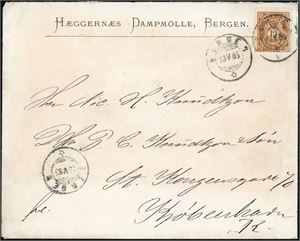 HÆGGERNÆS DAMPMÖLLE, BERGEN.
BERGEN
13 V 85
Herr Nic. H. Knudtzon
D'Hrr. C. Knudtzon & Søn
St. Kongensgade
Kjöbenhavn
K.
BERGEN